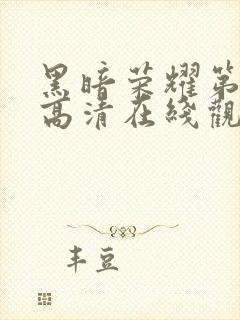 黑暗荣耀第
高清在线觀
丰豆